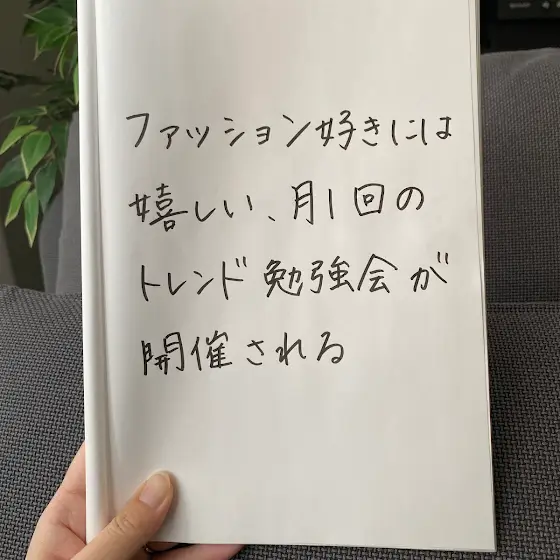 ファッション好きには
嬉しい、月1回の
トレンド勉強会が
開催される